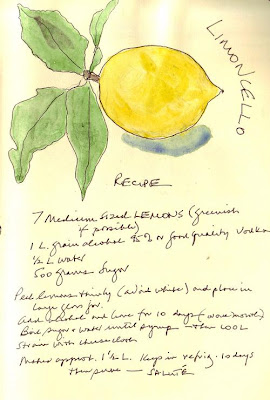 LIMONCELLO
RECIPE
7 Medium Sized LEMONS (greenish
if possible)
1 L. grain alcohol 95% or good quality Vodka
1/2 L water
500 grams sugar
Peel lemons thinly (avoid white) and place in
large glass jar.
Add alcohol and leave for 10 days
Boil sugar & water until syrup — then COOL
Strain with cheese cloth
Makes approx. 1 1/2 L. Keep in refrig. 10 days
then serve — SALUTE